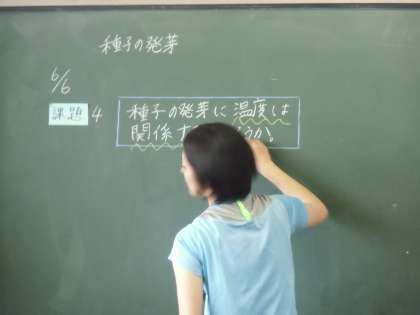 種子の発芽
6/6
課題 4
種子の発芽に温度は
関係す うか。